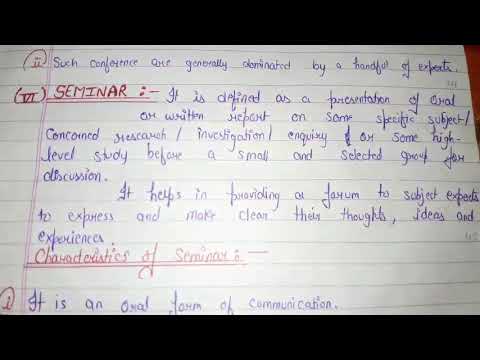 (ii) Such conference are generally dominated by a handful of experts.
(VI) SEMINAR :- It is defined as a presentation of oral
or written report on some specific subject/
Concerned research / investigation / enquiry & or some high-
level study before a small and selected group for
discussion.
It helps in providing a forum to subject experts
to express and make clear their thoughts, ideas and
experiences.
Characteristics of Seminar :-
(i) It is an oral form of communication.